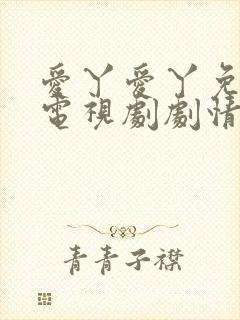 愛丫愛丫免
電視劇劇情
青青子襟